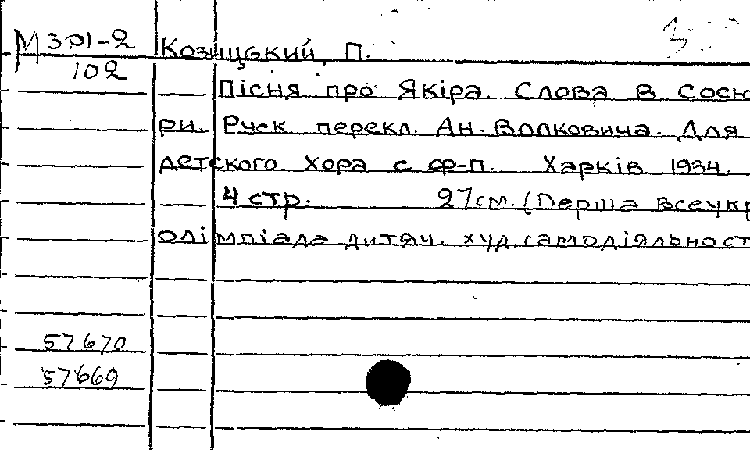 М 301-2 Козицький, П.
102
Пісня про Якіра. Слова В. Сосю
ри. Руск перекл. Ан. Волковича. Для
детского хора с ф-п. Харків 1934.
4 стр. 27см. (Перша всеукр
олімпіада дитяч. худ. самодіяльност
57670
57669